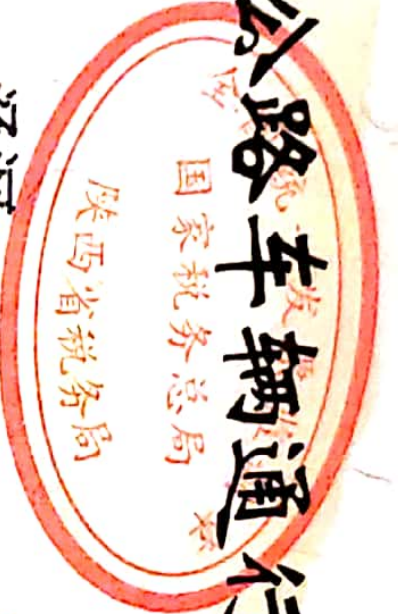 公路车辆通行
全国统一发票监制章
国家税务总局
陕西省税务局